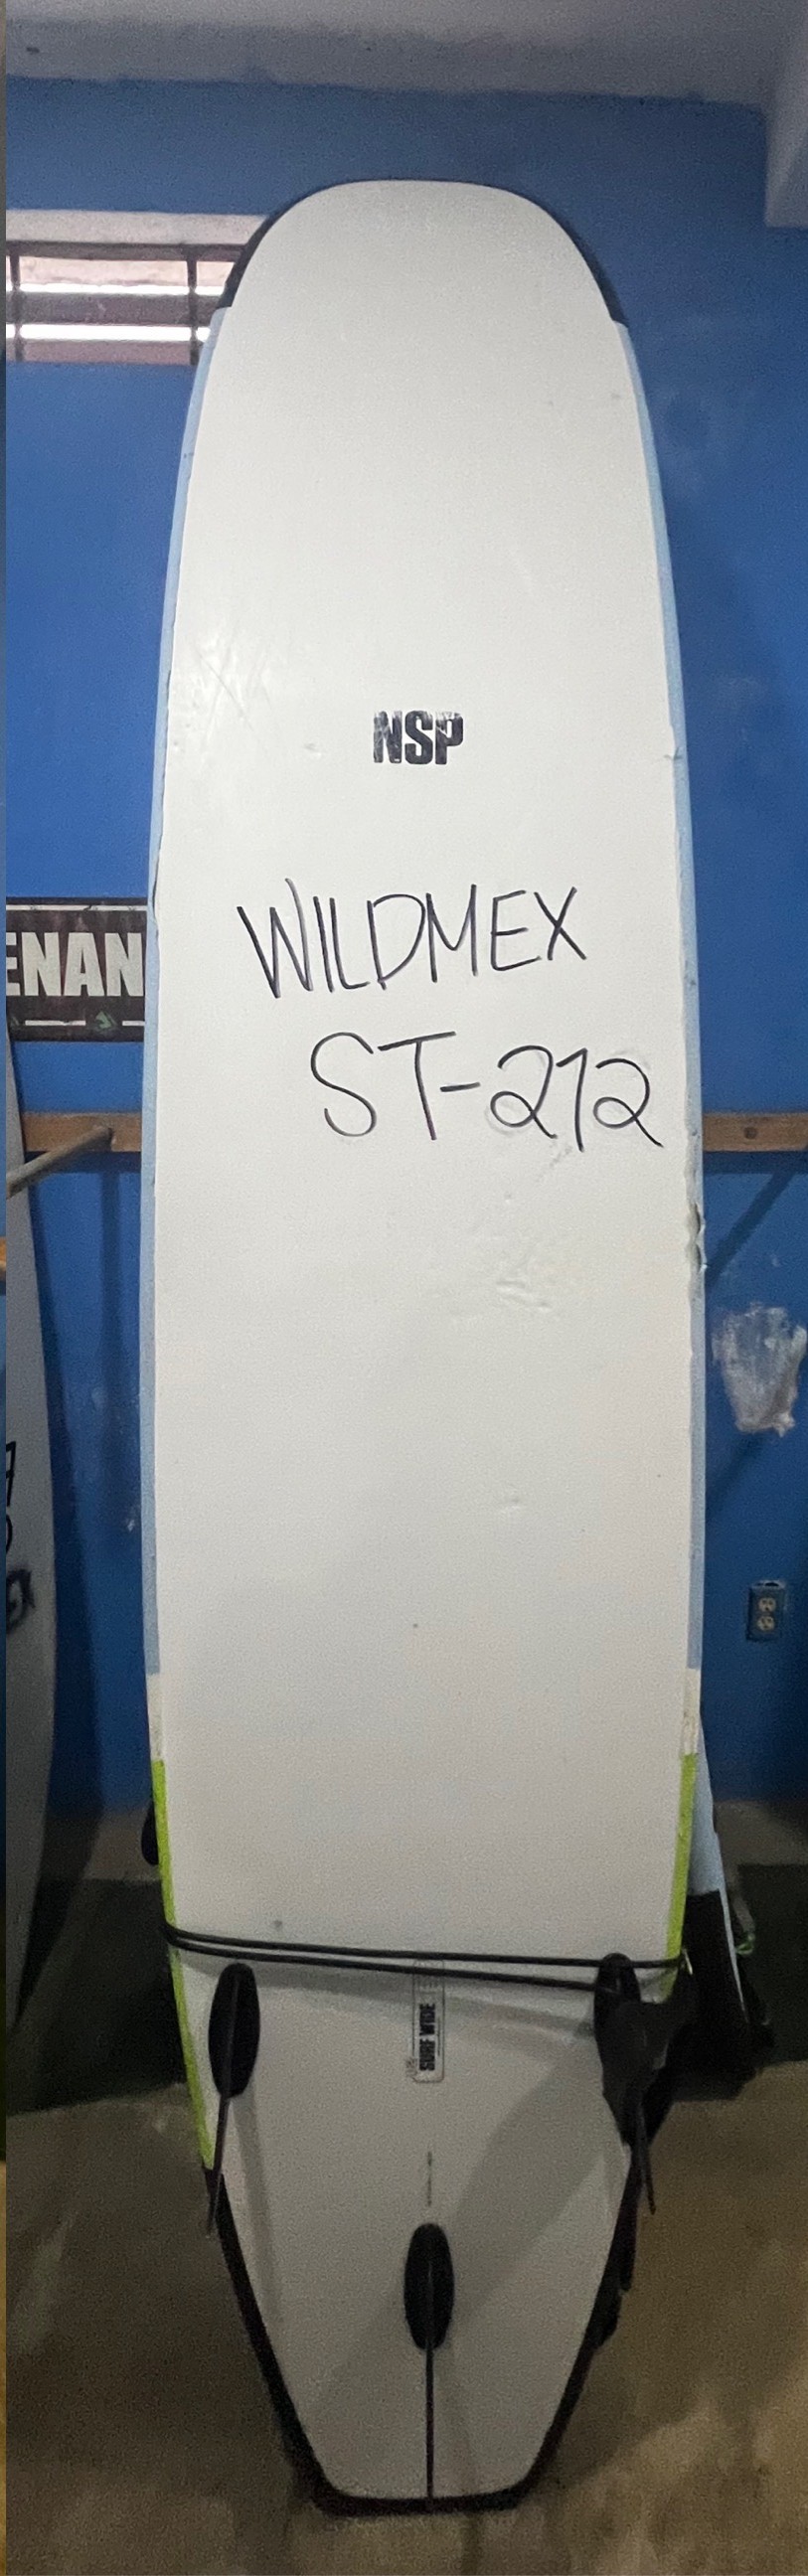 NSP
WILDMEX
ST-212
ENAN
SURF WIDE